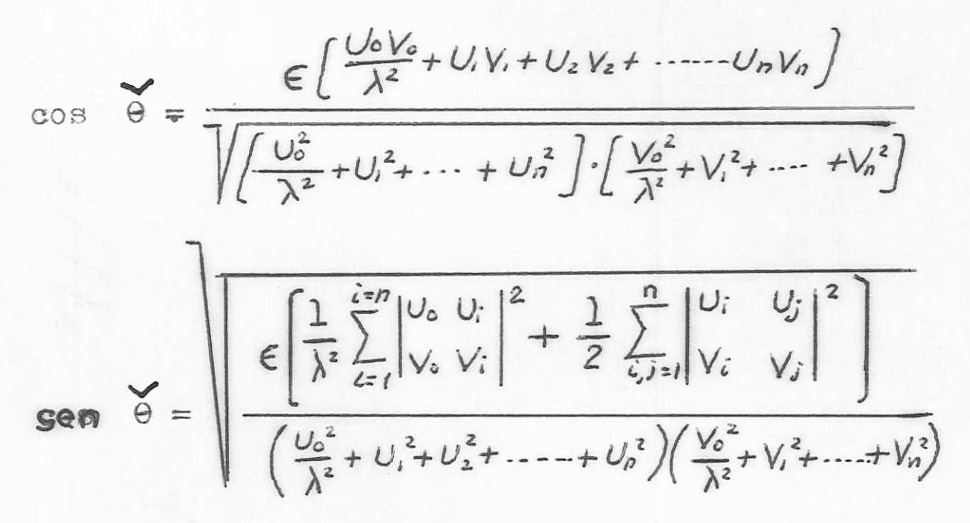 cos θ̌ = ϵ [ U₀V₀/λ² + U₁V₁ + U₂V₂ + ------- UₙVₙ ] / √([ U₀²/λ² + U₁² + ... + Uₙ² ]·[ V₀²/λ² + V₁² + ---- + Vₙ² ])
sen θ̌ = √( ϵ [ 1/λ² ∑_{i=1}^{i=n} |U₀ Uᵢ; V₀ Vᵢ|² + 1/2 ∑_{i,j=1}^{n} |Uᵢ Uⱼ; Vᵢ Vⱼ|² ] / ( U₀²/λ² + U₁² + U₂² + ------ + Uₙ² )( V₀²/λ² + V₁² + ..... + Vₙ² ) )